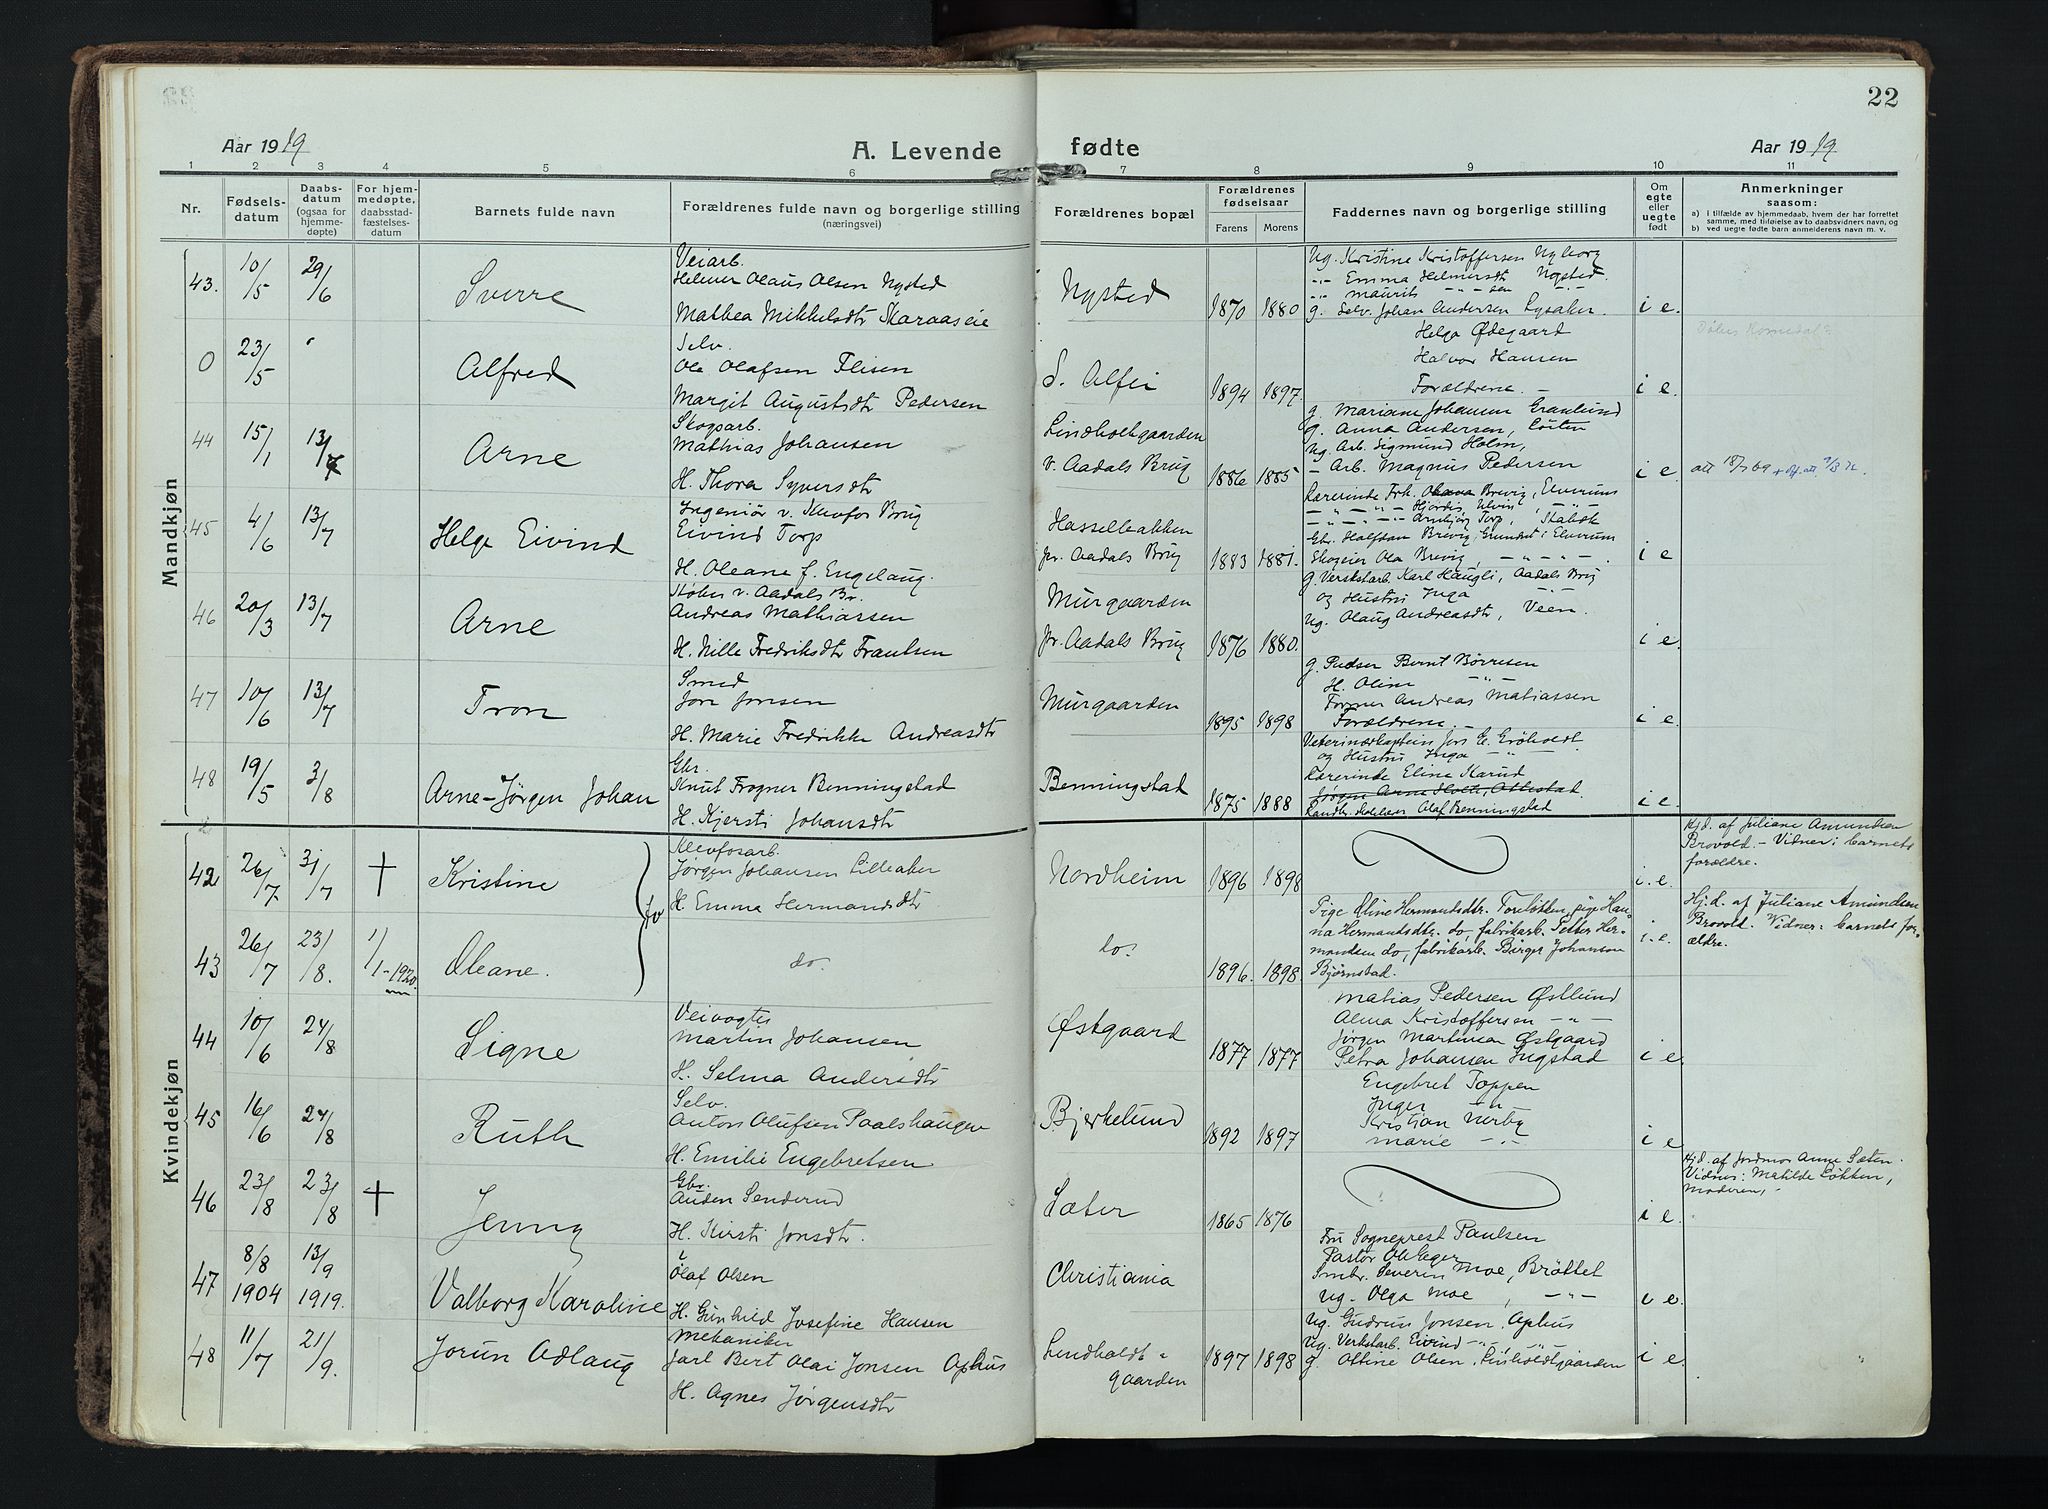 22
Aar 1919
A. Levende fødte
Aar 1919
1 2 3 4 5 6 7 8 9 10 11
Nr.
Fødselsdatum
Daabsdatum (ogsaa for hjemmedøpte)
For hjemmedøpte, daabsstadfæstelsesdatum
Barnets fulde navn
Forældrenes fulde navn og borgerlige stilling
(næringsvei)
Forældrenes bopæl
Forældrenes fødselsaar
Farens Morens
Faddernes navn og borgerlige stilling
Om egte eller uegte født
Anmerkninger
saasom:
a) I tilfælde av hjemmedaab, hvem der har forrettet samme, med tilføielse av to daabsvidners navn, og
b) ved uegte fødte barn anmelderens navn m. v.
Mandkjøn
43. 10/5 29/6 Sverre
Veiarb.
Helmer Olaus Olsen Nysted
Mathea Mikkelsdtr Skaraaseie
Nysted 1870 1880
Ug. Kristine Kristoffersen Nyborg
-"- Emma Helmersdt Nysted.
-"- Maurits -"- sen -"-
g. Selv. Johan Andersen Lysaker.
i e.
0 23/5 Alfred
Selv.
Ole Olafsen Flisen
Margit Augustsdtr Pedersen
S. Alfei 1894 1897
Helga Ødegaard
Halvor Hansen
Forældrene -
i e.
44 15/1 13/7 Arne
Skogsarb.
Mathias Johansen
H. Thora Syversdtr
Lindholtgaarden
v. Aadals Brug 1886 1885
g. Mariane Johansen Granlund
g. Anna Andersen, Løiten
Ug. Arb. Sigmund Holm,
- Arb. Magnus Pedersen
i e.
att 18/7 69
45 4/6 13/7 Helge Eivind
Ingeniør v. Klevfos Brug
Eivind Torp
H. Oleane f. Engelaug.
Hasselbakken
pr. Aadals Brug 1883 1881.
Lærerinde Frk. Brevig, Elverum
Gbr. Halfdan Brevig, Grundset i Elverum
Skogeier Ola Brevig, -"- -"-
i e
46 20/3 13/7 Arne
Støber v. Aadals Br.
Andreas Mathiassen
H. Nille Fredriksdtr Frantsen
Murgaarden
pr. Aadals Brug 1876 1880.
g. Verkstarb. Karl Haugli, Aadals Brug
og Hustru Inga -"-
Ug. Olaug Andreasdtr, Veen.
i e.
47 10/6 13/7 Tron
Smed
Jon Jonsen
H. Marie Fredrikke Andreasdtr
Murgaarden 1895 1898
g. Pudser Bernt Børresen
H. Oline -"-
Former Andreas Matiassen
Forældrene -
i e.
48 19/5 3/8 Arne-Jørgen Johan
Gbr.
Knut Frogner Benningstad
H. Kjersti Johansdtr
Benningstad 1875 1888
Veterinærkaptein Jens E. Grøholdt
og Hustru Inga -"-
Lærerinde Eline Karud
Jørgen Arne Holth, Ottestad
Landh. Olaf Benningstad
i e.
Kvindekjøn
42 26/7 31/7 † Kristine
Klevfosarb.
Jørgen Johansen Lilleaker
H. Emma Hermandsdtr
Nordheim 1896 1898
i. e.
Hj.d. af Juliane Amundsen
Brovold. - Vidner: barnets
forældre.
43 26/7 23/8. 1/1-1920. Oleane.
do.
do. 1896. 1898
Pige Oline Hermandsdtr. Toreløkken, pige Han-
na Hermandsdtr. do, fabrikarb. Petter Her-
mandsen do, fabrikarb. Birger Johansen
Bjørnstad.
i. e.
Hj.d. af Juliane Amundsen
Brovold. Vidner: barnets for-
ældre.
44 10/6 24/8 Signe
Veivogter
Martin Johansen
H. Selma Andersdtr
Østgaard 1877 1877
Matias Pedersen Østlund
Alma Kristoffersen -"-
Jørgen Martinsen Østgaard
Petra Johansen Ingstad
i e.
45 16/6 24/8 Ruth
Selv.
Anton Olufsen Paalshaugen
H. Emilie Engebretsen
Bjerkelund 1892 1897
Engebret Toppen
Inger -"-
Kristian Nerby
Marie -"-
i e
46 23/8 23/8 † Jenny
Gbr.
Auden Senderud
H. Kirsti Jonsdtr.
Sæter 1865 1876
i e.
Hj.d. af Jordmor Anne Sæten.
Vidner: Matilde Løkken,
Moderen.
47 8/8 1904 13/9 1919. Valborg Karoline
Olaf Olsen
H. Gunhild Josefine Hansen
Christiania
Fru Sogneprest Paulsen
Pastor Ole Eger
Smbr. Severin Moe, Brøttet
Ug. Olga Moe, -"-
i e.
48 11/7 21/9. Jorun Odlaug
Mekaniker
Jarl Bert Olai Jonsen Ophus
H. Agnes Jørgensdtr
Lindholdt-
gaarden 1897 1898
Ug. Gudrun Jonsen, Ophus
Ug. Verkstarb. Eivind -"-
g. Ottine Olsen, Linholdtgaarden
i e.